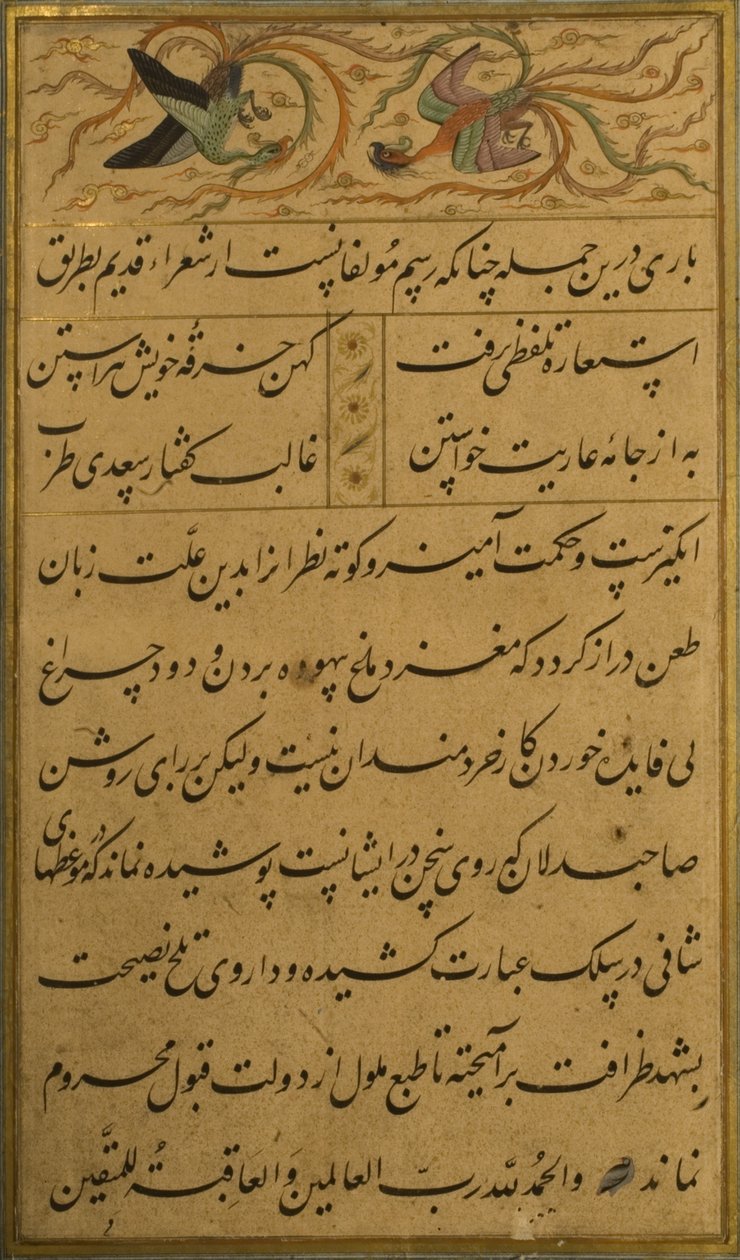 باری درین جمله چنانکه رسم مؤلفانست از شعراء قدیم بطریق
استعارة تلفظی برفت
کهن خرقهٔ خویش پیراستن
به از جامهٔ عاریت خواستن
غالب گفتار سعدی طرب
انگیزست و حکمت آمیز و کوته نظرانرا بدین علّت زبان
طعن دراز کردد که مغز دماغ بیهوده بردن و دود چراغ
بی فایده خوردن کار خردمندان نیست ولیکن بر رای روشن
صاحبدلان که روی سخن در ایشانست پوشیده نماند که در موعظهای
شافی در سلک عبارت کشیده و داروی تلخ نصیحت
بشهد ظرافت برآمیخته تا طبع ملول از دولت قبول محروم
نماند والحمدُ لله ربّ العالمین وَالعَاقبةُ للمتّقین